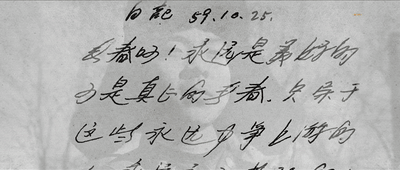 自記 59.10.25.
青春呀！永远是美好的
是真正的青春，只属于
这些永远力争上游的